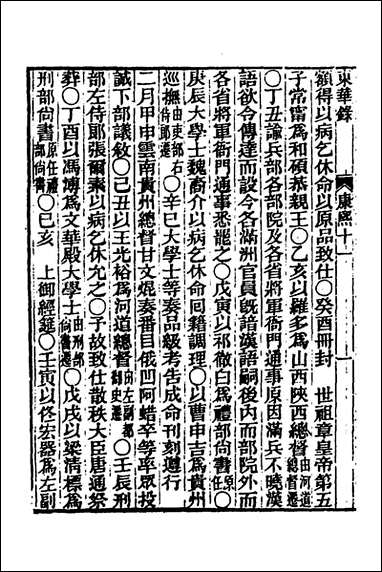 東華錄 康熙十一 一
額得以病乞休命以原品致仕○癸酉冊封 世祖章皇帝第五
子常甯爲和碩恭親王○乙亥以羅多爲山西陝西總督由河道總督遷
○丁丑諭兵部各部院及各省將軍衙門通事原因滿兵不曉漢
語欲令傳達而設今各滿洲官員旣諳漢語嗣後內而部院外而
各省將軍衙門通事悉罷之○戊寅以祁徹白爲禮部尚書原任○
庚辰大學士魏裔介以病乞休命回籍調理○以曹申吉爲貴州
巡撫由吏部右侍郎遷○辛巳大學士等奏品級考告成命刊刻遵行
二月甲申雲南貴州總督甘文焜奏番目俄凹阿蜡卒等率眾投
誠下部議敘○己丑以王光裕爲河道總督由左副都御史遷○壬辰刑
部左侍郎張爾素以病乞休允之○予故致仕散秩大臣唐通祭
葬○丁酉以馮溥爲文華殿大學士由刑部尚書遷○戊戌以梁清標爲
刑部尚書原任禮部尚書○己亥 上御經筵○壬寅以佟宏器爲左副